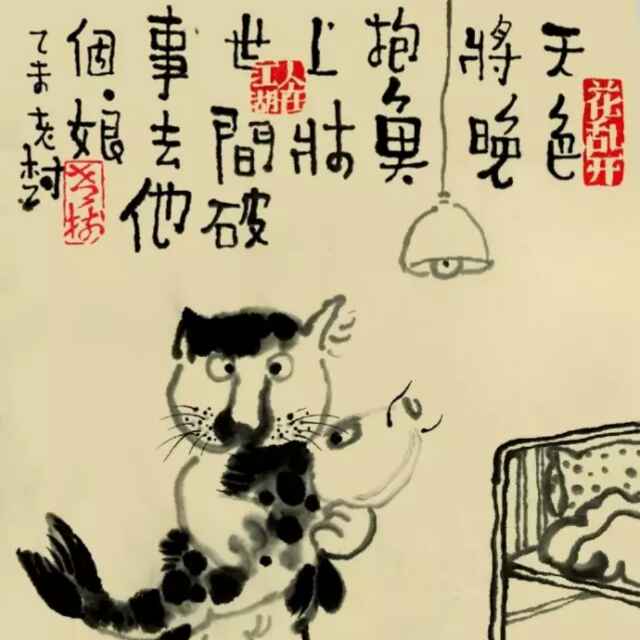 花乱开
天色
將晚
抱魚
上牀
人在江湖
世間破
事去他
個娘
乙未老树
老树